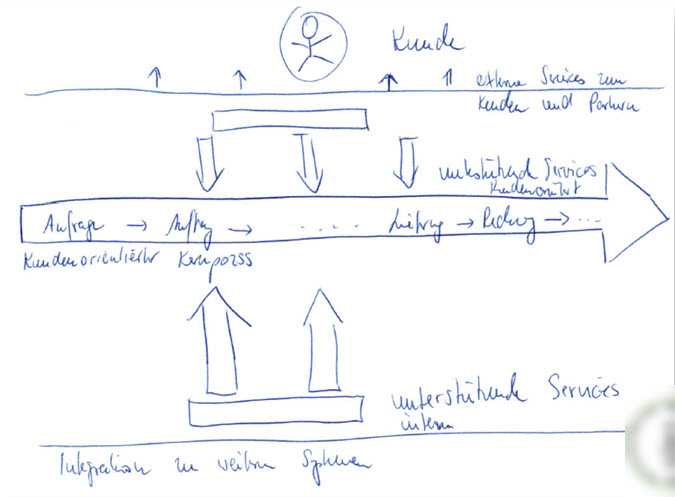 Kunde
externe Services zum
Kunden und Partnern
unterstützende Services
Kundenorientiert
Anfrage → Auftrag → .... Lieferung → Rechnung → ...
Kundenorientierter Kernprozess
unterstützende Services
intern
Integration zu weiteren Systemen